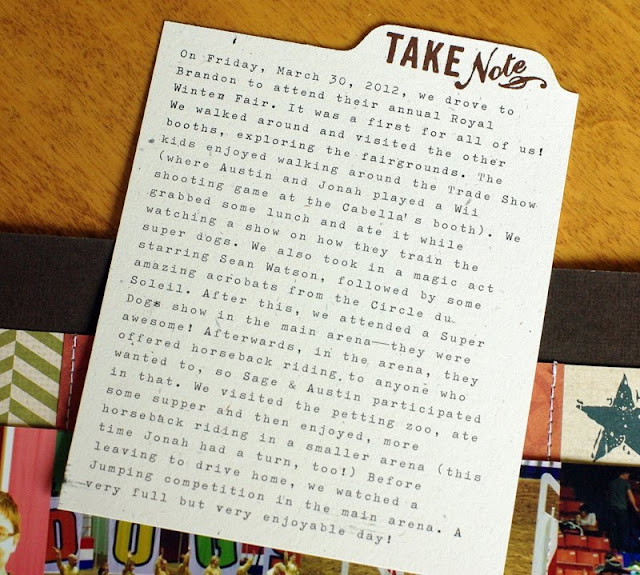 TAKE Note
On Friday, March 30, 2012, we drove to
Brandon to attend their annual Royal
Winter Fair. It was a first for all of us!
We walked around and visited the other
booths, exploring the fairgrounds. The
kids enjoyed walking around the Trade Show
(where Austin and Jonah played a Wii
shooting game at the Cabella's booth). We
grabbed some lunch and ate it while
watching a show on how they train the
super dogs. We also took in a magic act
starring Sean Watson, followed by some
amazing acrobats from the Circle du
Soleil. After this, we attended a Super
Dogs show in the main arena—they were
awesome! Afterwards, in the arena, they
offered horseback riding to anyone who
wanted to, so Sage & Austin participated
in that. We visited the petting zoo, ate
some supper and then enjoyed, more
horseback riding in a smaller arena (this
time Jonah had a turn, too!) Before
leaving to drive home, we watched a
Jumping competition in the main arena. A
very full but very enjoyable day!
DOG